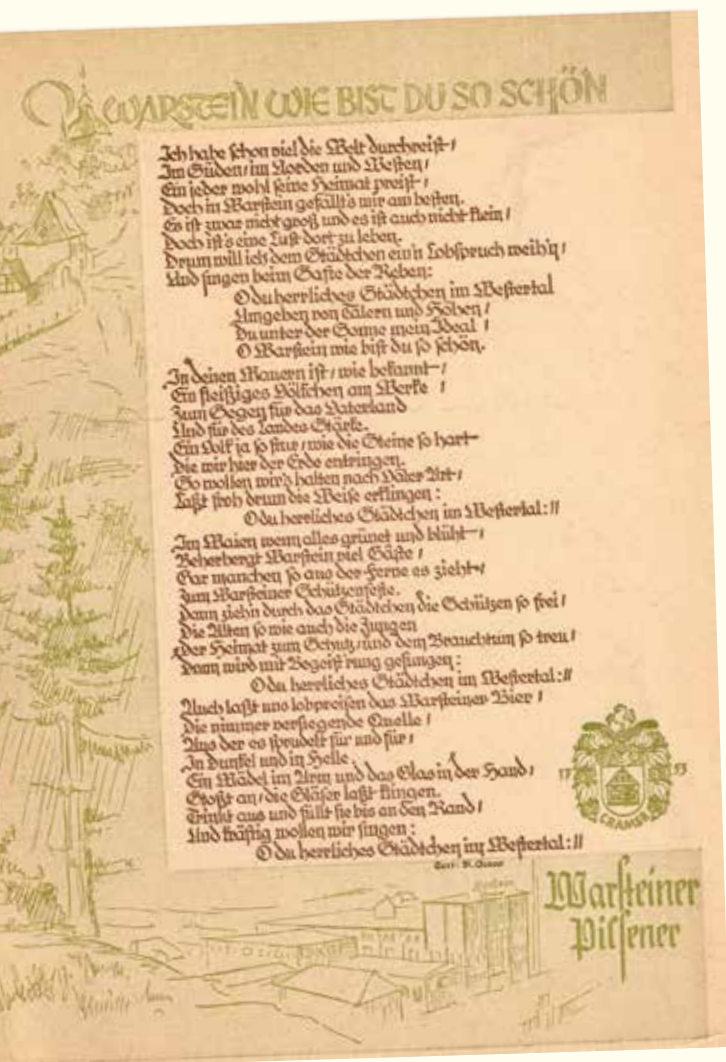 O WARSTEIN WIE BIST DU SO SCHÖN
Ich habe schon viel die Welt durchreist,
Im Süden, im Norden und Westen,
Ein jeder wohl seine Heimat preist,
Doch in Warstein gefällt's mir am besten.
Es ist zwar nicht groß und es ist auch nicht klein,
Doch ist's eine Lust dort zu leben.
Drum will ich dem Städtchen ein'n Lobspruch weih'n,
Und singen beim Safte der Reben:
O du herrliches Städtchen im Westertal
Umgeben von Tälern und Höhen,
Du unter der Sonne mein Ideal,
O Warstein wie bist du so schön.
In deinen Mauern ist, wie bekannt,
Ein fleißiges Völkchen am Werke,
Zum Segen für das Vaterland
Und für des Landes Stärke.
Ein Volk ja so stur, wie die Steine so hart
Die wir hier der Erde entringen.
So wollen wir's halten nach Väter Art,
Laßt froh drum die Weise erklingen:
O du herrliches Städtchen im Westertal ://
Im Maien wenn alles grünet und blüht,
Beherbergt Warstein viel Gäste,
Gar manchen so aus der Ferne es zieht,
Zum Warsteiner Schützenfeste.
Dann zieh'n durch das Städtchen die Schützen so frei,
Die Alten so wie auch die Jungen
Der Heimat zum Schutz, und dem Brauchtum so treu,
Dann wird mit Begeist'rung gesungen:
O du herrliches Städtchen im Westertal ://
Auch laßt uns lobpreisen das Warsteiner Bier,
Die nimmer versiegende Quelle,
Aus der es sprudelt für und für,
In Dunkel und in Helle.
Ein Mädel im Arm und das Glas in der Hand,
Stoßt an, die Gläser laßt klingen.
Trinkt aus und füllt sie bis an den Rand,
Und kräftig wollen wir singen:
O du herrliches Städtchen im Westertal ://
17 53
CRAMER
Warsteiner
Pilsener